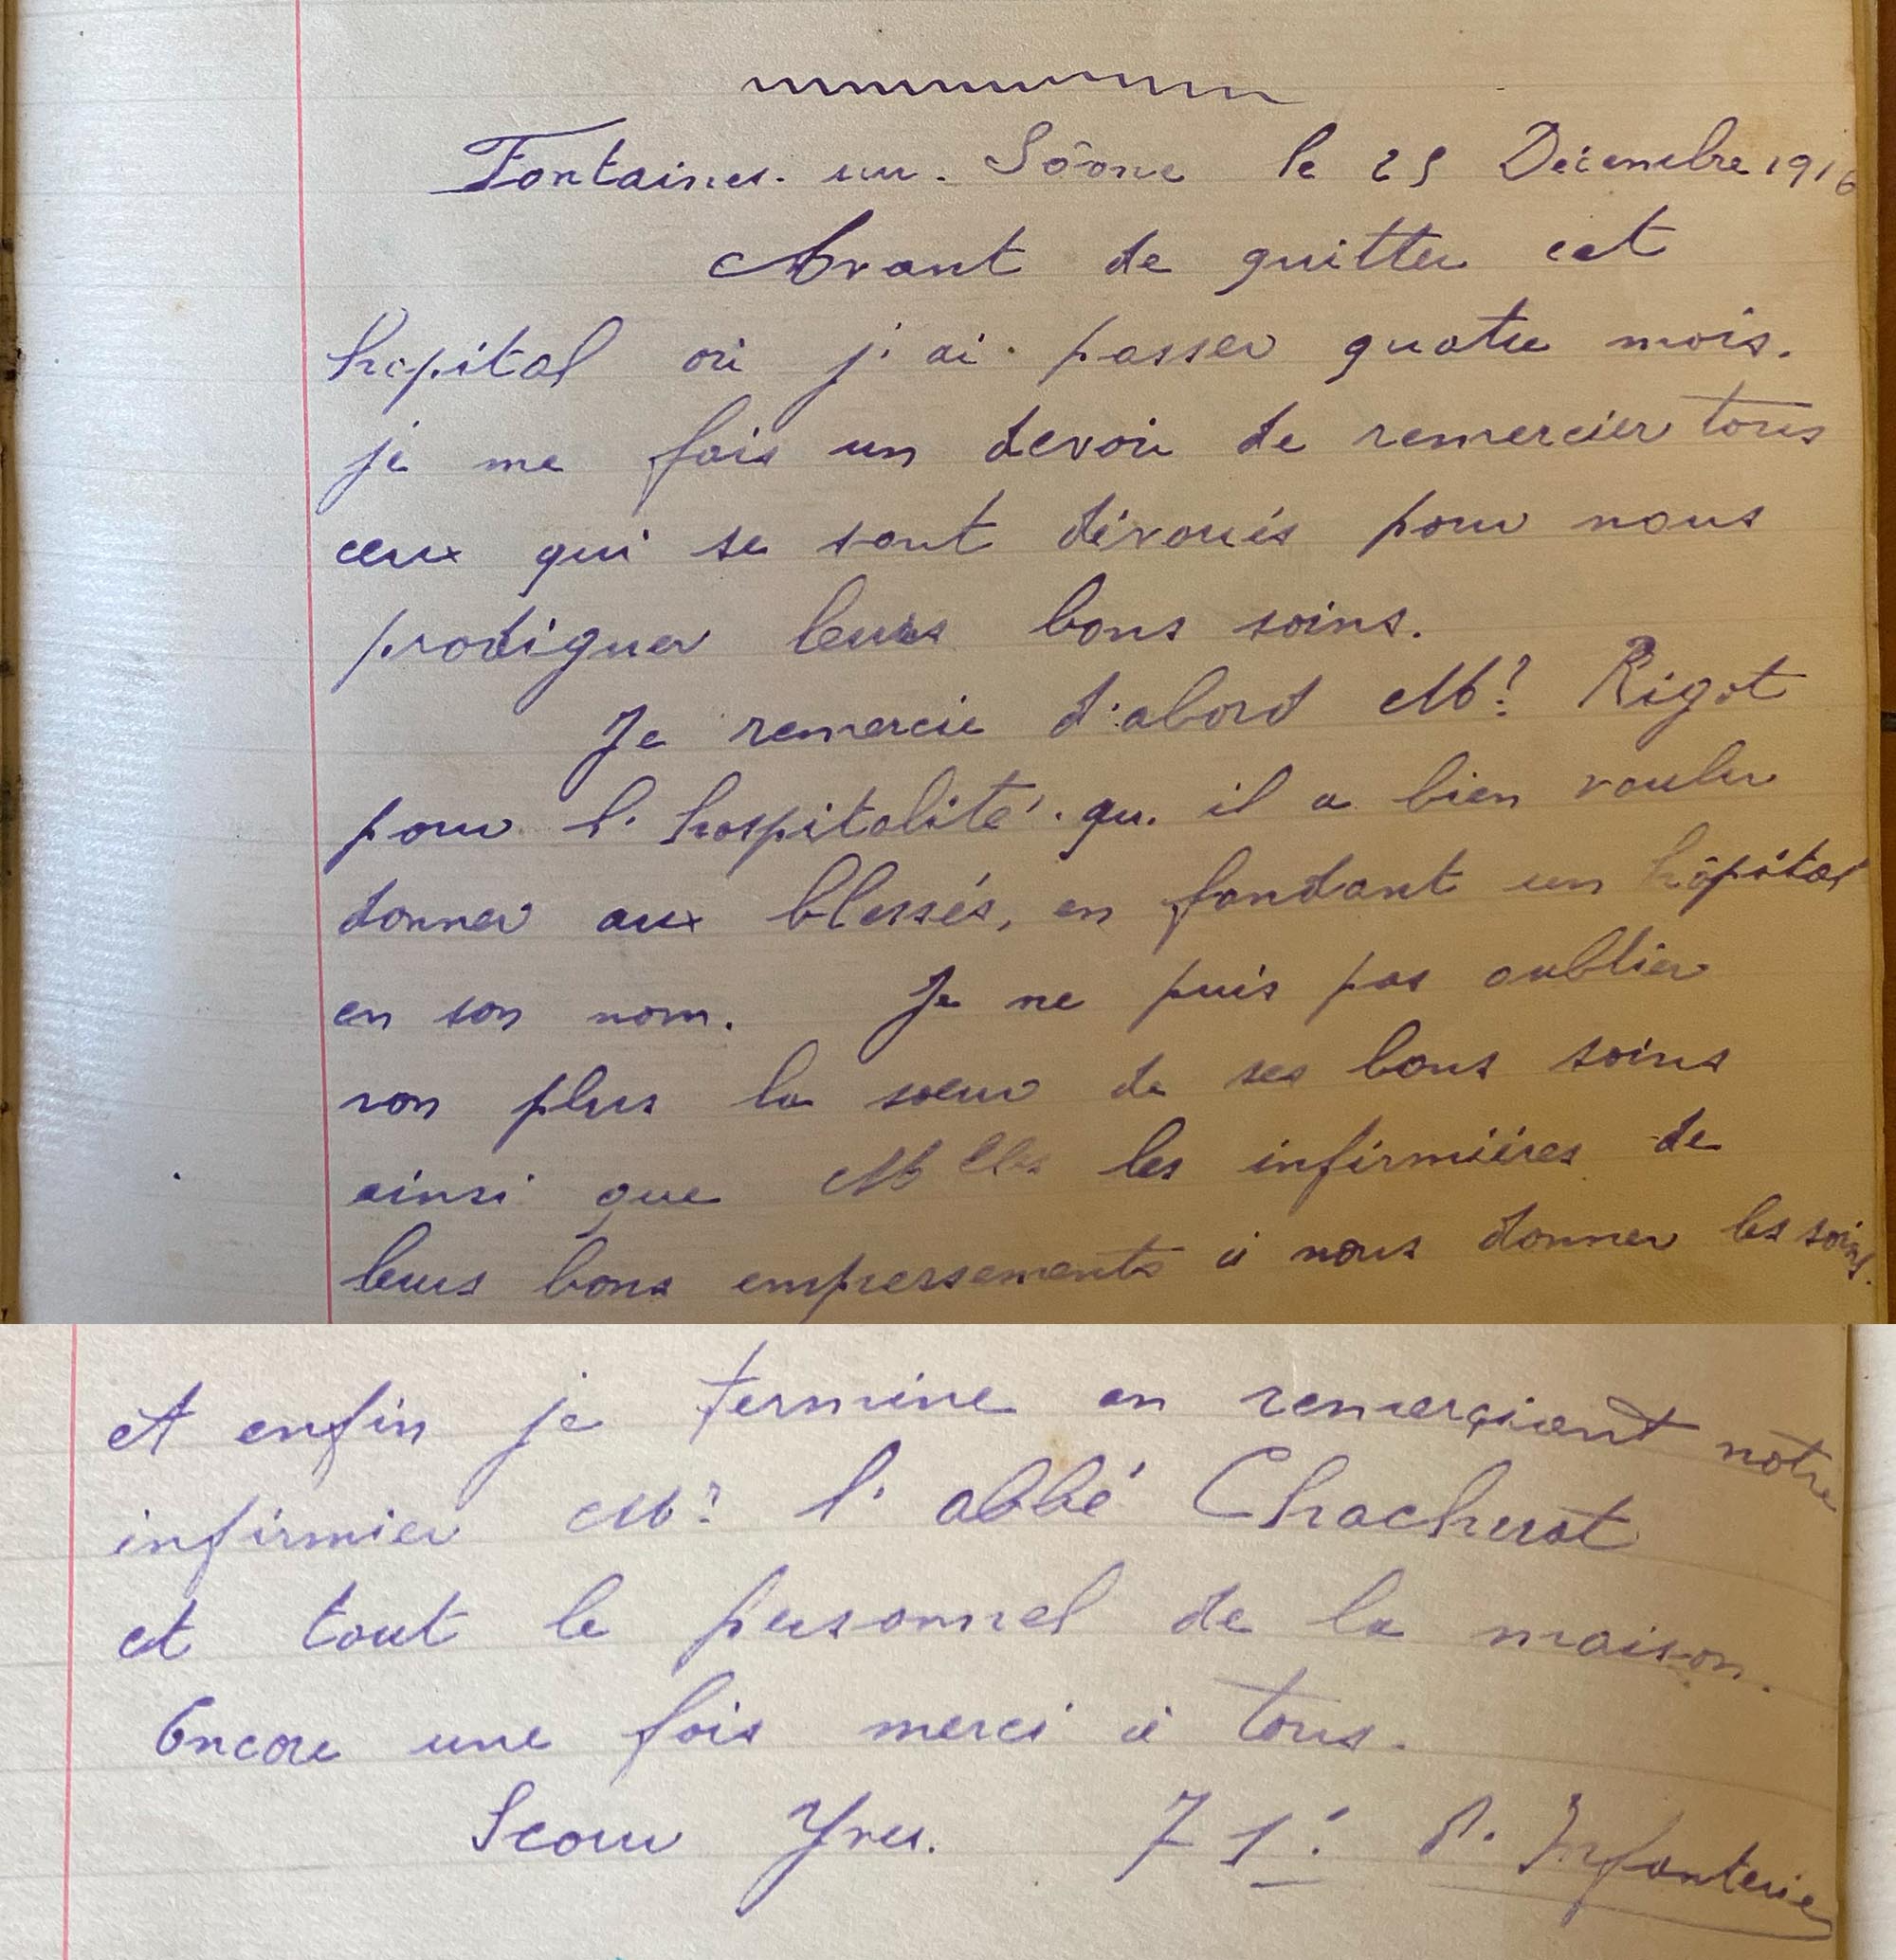 Fontaines. sur. Sâone le 25 Décembre 1916
Avant de quitter cet
hopital où j'ai passer quatre mois.
je me fais un devoir de remercier tous
ceux qui se sont dévoués pour nous
prodiguer leurs bons soins.
Je remercie d'abord Mr Rigot
pour l'hospitalité qu'il a bien voulu
donner aux blessés, en fondant un hôpital
en son nom. Je ne puis pas oublier
non plus la sœur de ses bons soins
ainsi que Melles les infirmières de
leurs bons empressements à nous donner les soins.
et enfin je termine en remerçient notre
infirmier Mr l'abbé Chacherot
et tout le personnel de la maison.
Encore une fois merci à tous.
Scour Yves. 71e R. Infanterie